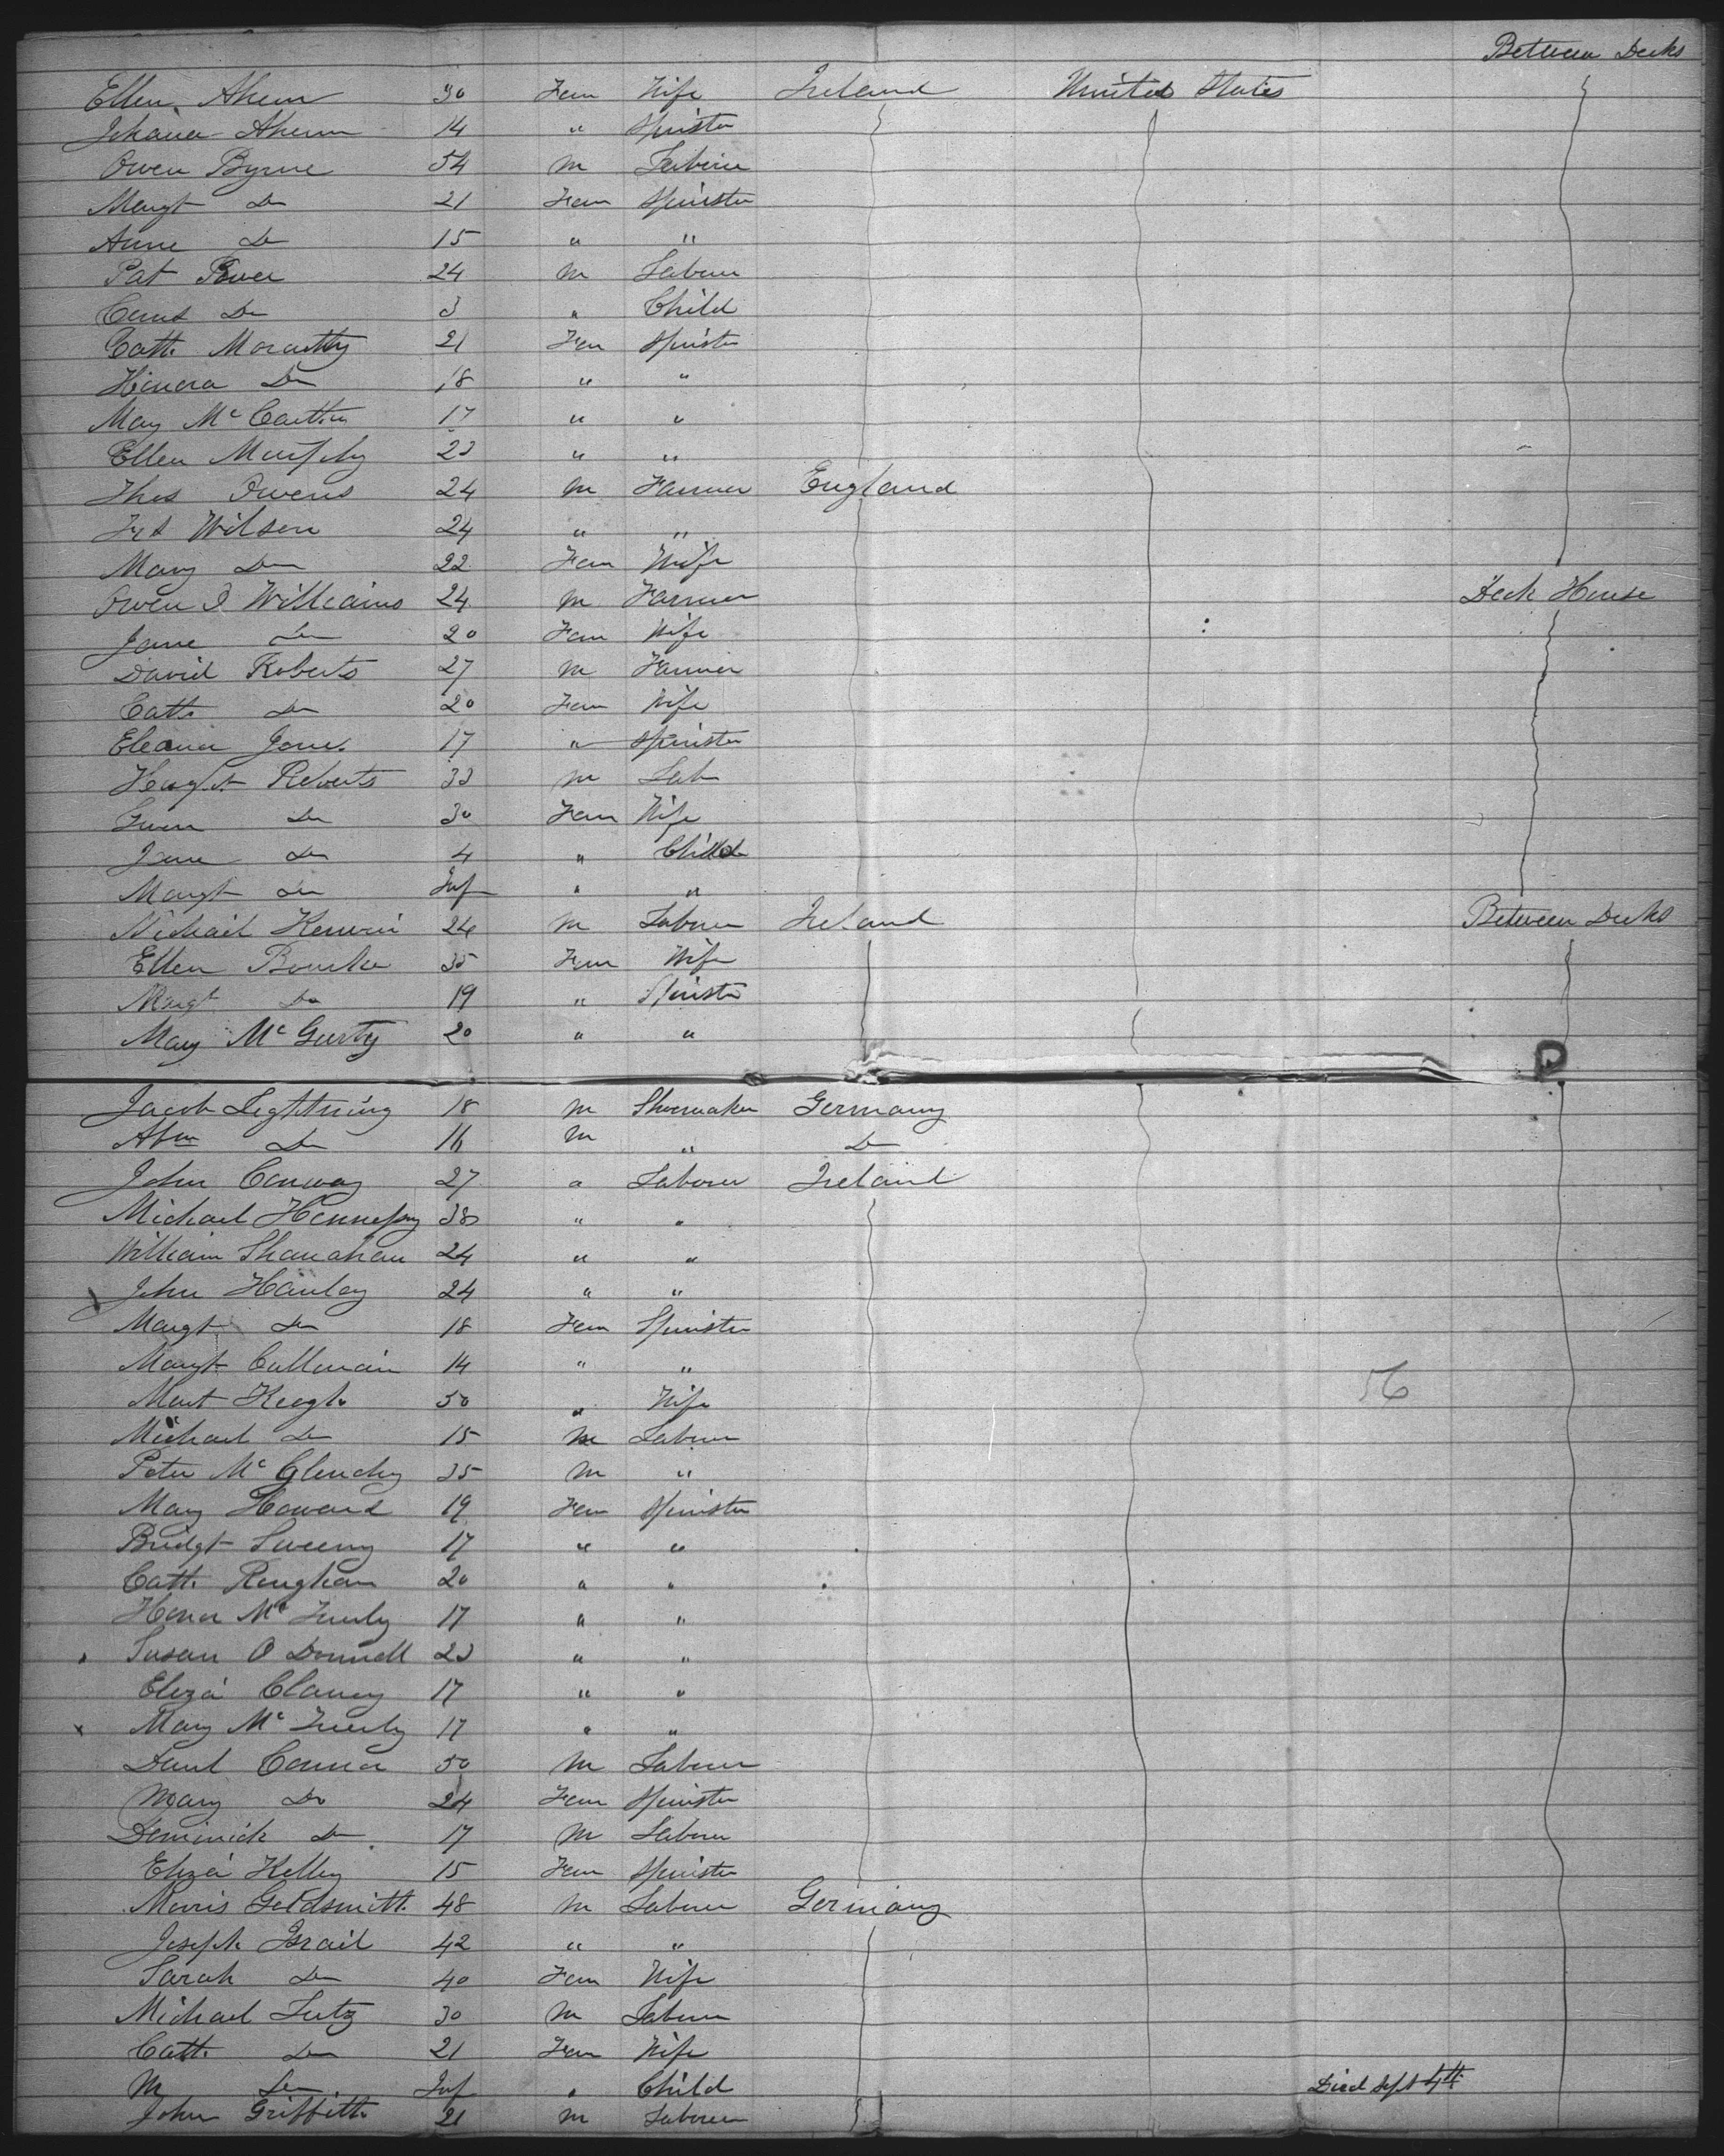 Between Decks
Ellen Ahern 30 Fem Wife Ireland United States
Johana Ahern 14 " Spinster
Owen Byrne 54 M Laborer
Margt Do 21 Fem Spinster
Anne Do 15 " "
Pat Power 24 M Laborer
Do 3 " Child
Cath Moriarthy 21 Fem Spinster
Honora Do 18 " "
Mary McCarthy 17 " "
Ellen Murphy 23 " "
Thos Owens 24 M Farmer England
Wilson 24 " "
Mary Do 22 Fem Wife
Owen J Williams 24 M Farmer Deck House
Jane Do 20 Fem Wife
David Roberts 27 M Farmer
Cath Do 20 Fem Wife
Eleanor Jones 17 " Spinster
Roberts 33 M Lab
Do 30 Fem Wife
Jane Do 4 " Child
Margt Do Inf " "
Michael Kerwin 24 M Laborer Ireland Between Decks
Ellen Bourke 35 Fem Wife
Margt Do 19 " Spinster
Mary McGurty 20 " "
Jacob Lightning 18 M Shoemaker Germany
Abm Do 16 M " Do
John Conway 27 " Laborer Ireland
Michael Hennessy 38 " "
William Shanahan 24 " "
John Hanley 24 " "
Margt Do 18 Fem Spinster
Margt Cullinain 14 " "
56
Keogh 50 " Wife
Michael Do 15 M Laborer
Peter McGlenchy 35 M "
Mary Howard 19 Fem Spinster
Bridgt Sweeny 17 " "
Cath Roughan 20 " "
Honor Mc 17 " "
Susan O Donnell 23 " "
Eliza Clancy 17 " "
x Mary Mc 17 " "
Danl Connor 50 M Laborer
Mary Do 24 Fem Spinster
Dominick Do 17 M Laborer
Eliza Kelley 15 Fem Spinster
Morris Goldsmith 48 M Laborer Germany
Joseph Israil 42 " "
Sarah Do 40 Fem Wife
Michael Lutz 30 M Laborer
Cath Do 21 Fem Wife
M Do Inf " Child Died Sept 4th
John Griffith 21 M Laborer